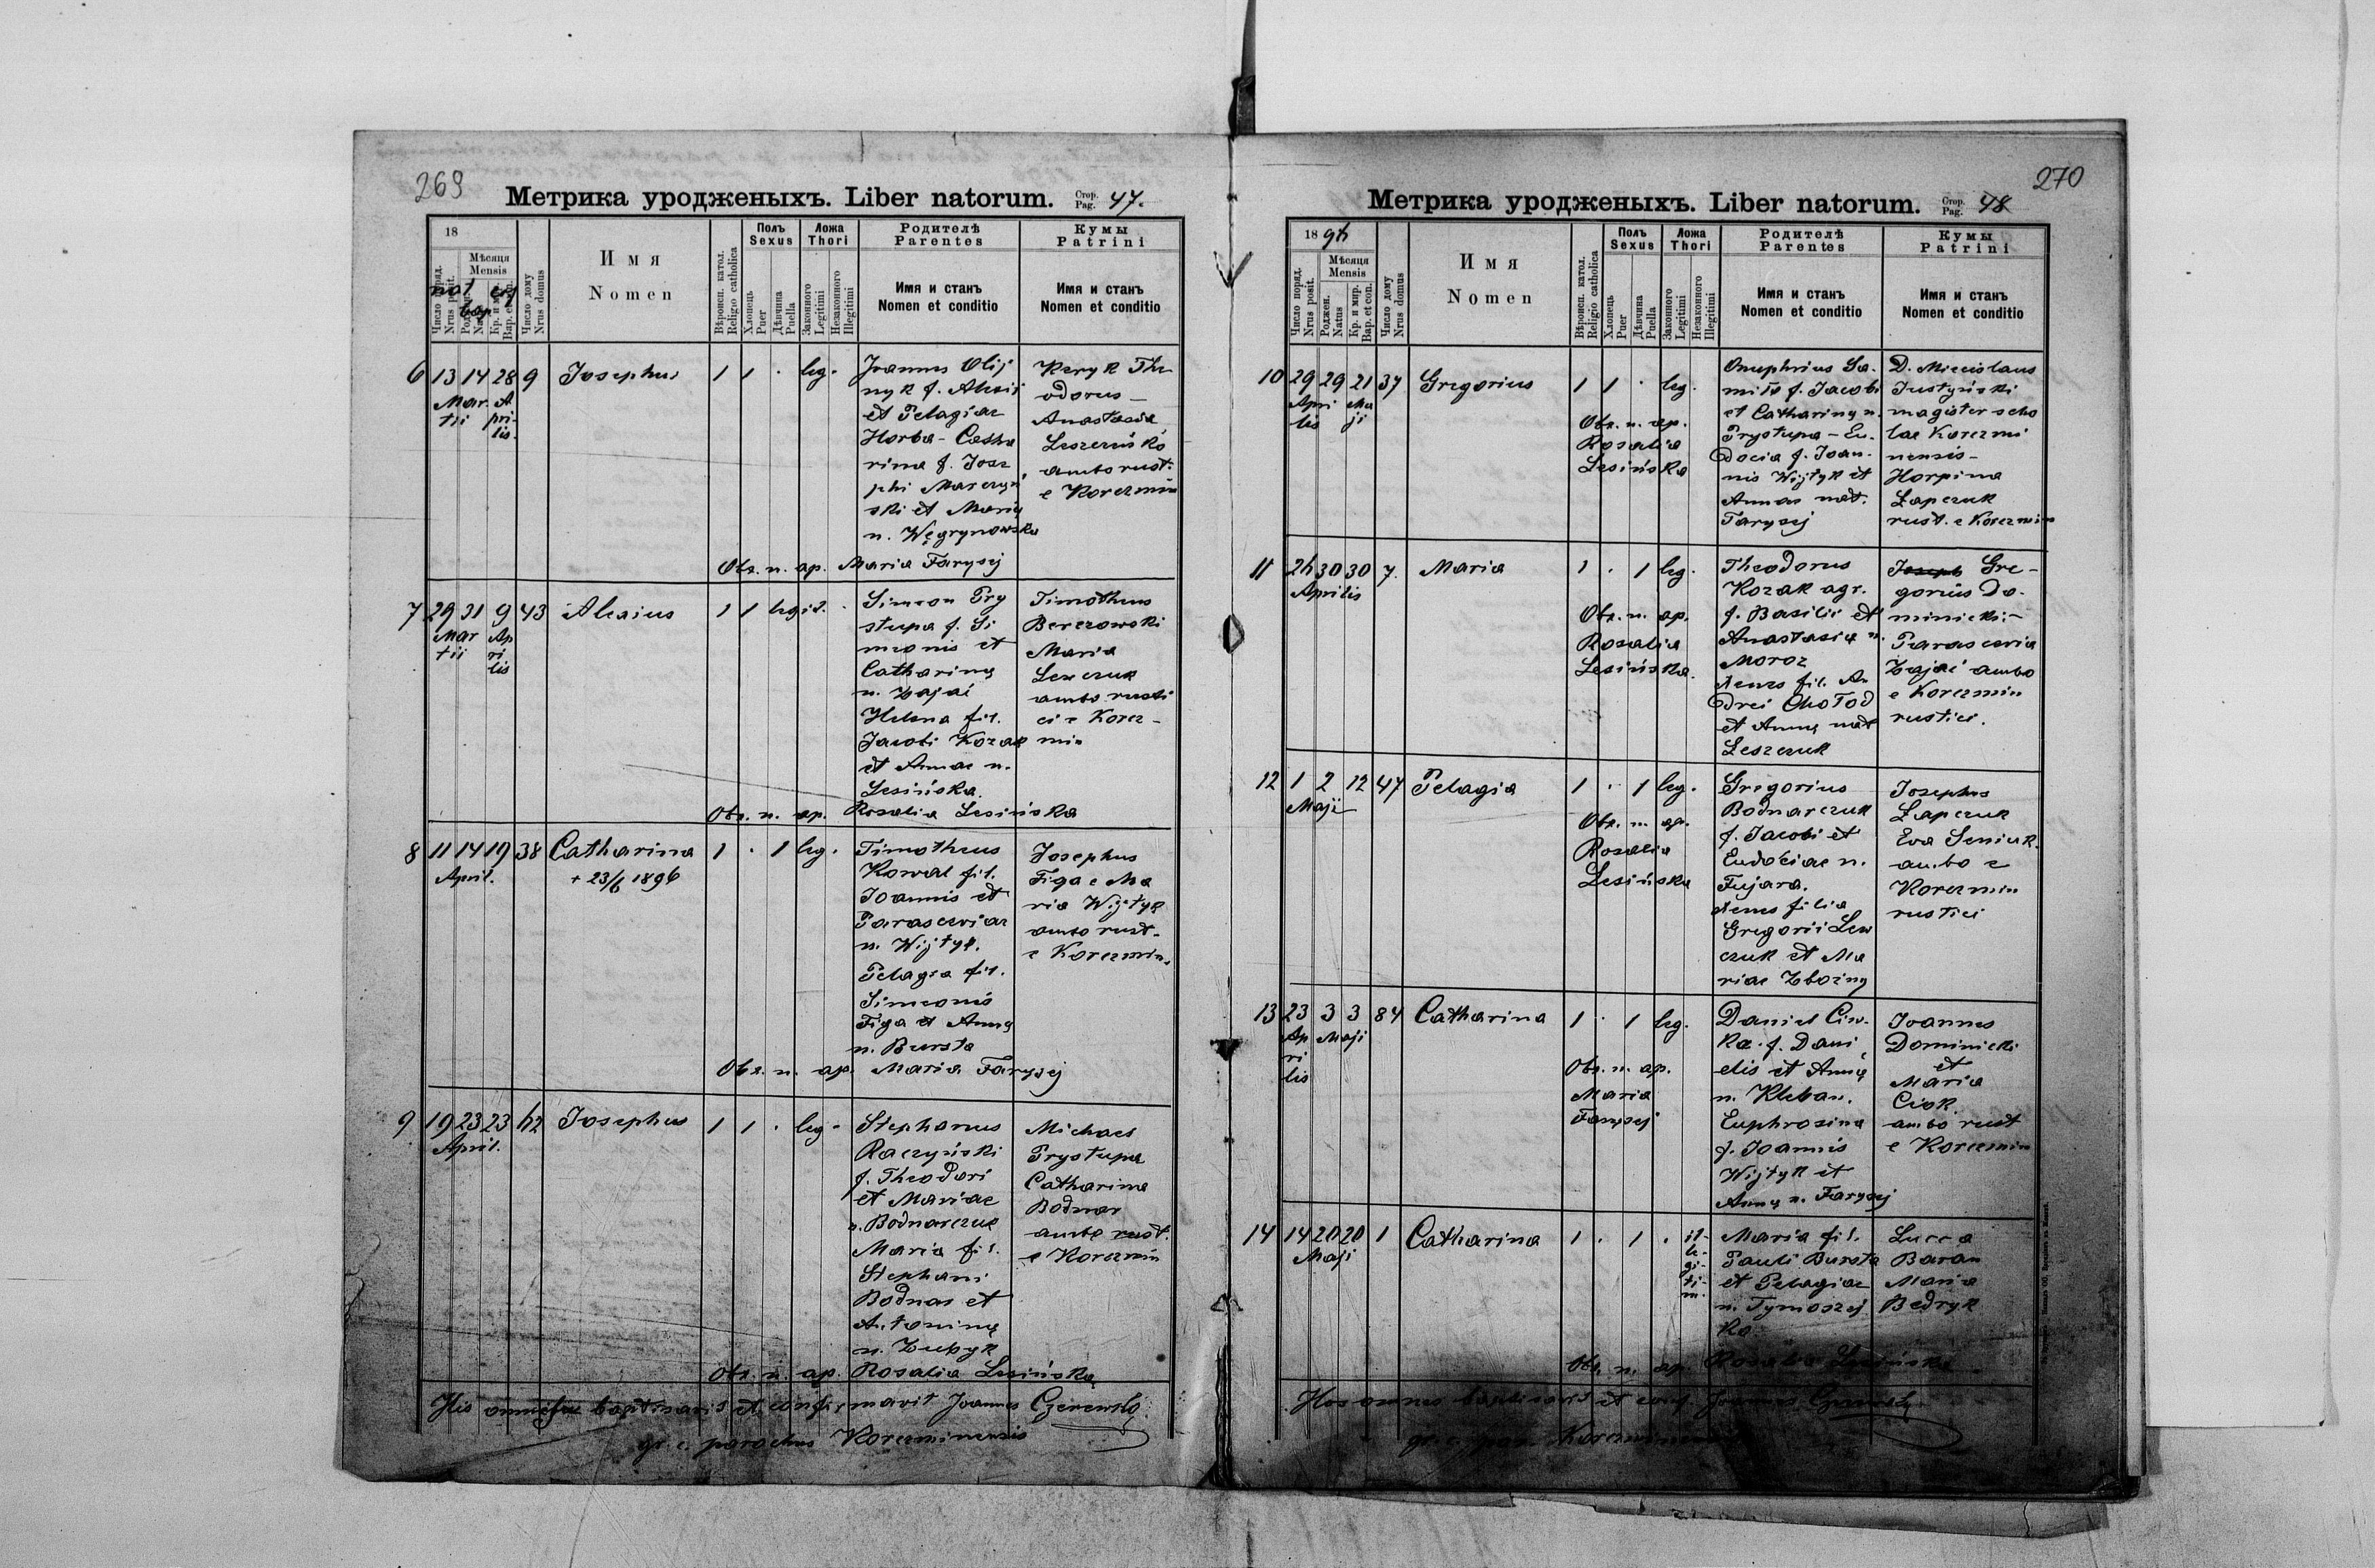 269
Метрика уродженыхъ. Liber natorum. Стор. Pag. 47.
18
Число поряд. Nrus posit.
Мѣсяця Mensis
nat
bap
Число дому Nrus domus
Имя
Nomen
Вѣроисп. катол. Religio catholica
Полъ Sexus
Хлопець Puer
Дѣвчина Puella
Ложа Thori
Законного Legitimi
Незаконного Illegitimi
Родителѣ Parentes
Имя и станъ
Nomen et conditio
Кумы Patrini
Имя и станъ
Nomen et conditio
6 13 14 28 9 Josephus 1 1 . leg.
Mar. A
tii pri-
lis.
Joannes Olij
nyk f. Alexii
et Pelagiae
Horba - Catha
rina f. Jose
phi Marczyń
ski et Marię
n. Węgrynowska
Keryk The
odorus -
Anastasia
Leszczuńsko
ambo rust.
e Korczmin
Obs. n. ap. Maria Farysej
7 29 31 9 43 Alexius 1 1 legit. .
Mar Ap
tii ri
lis
Simeon Pry
stupa f. Si
meonis et
Catharinę
n. Zajać
Helena fil.
Jacobi Kozak
et Annae n.
Lesińska.
Timotheus
Berezowski
Maria
Leszczuk
ambo rusti
ci e Korcz-
min
Obs. n. ap. Rosalia Lesińska
8 11 14 19 38 Catharina 1 . 1 leg.
April. + 23/6 1896
Timotheus
Kowal fil.
Joannis et
Parasceviae
n. Wijtyk.
Pelagia fil.
Simeonis
Figa et Annę
n. Bursta
Josephus
Figa e Ma
ria Wijtyk
ambo rust.
e Korczmin.
Obs. n. ap. Maria Farysej
9 19 23 23 62 Josephus 1 1 . leg.
April.
Stephanus
Raczyński
f. Theodori
et Mariae
n. Bodnarczuk
Maria fil.
Stephani
Bodnar et
Antoninę
n. Zubyk
Michael
Prystupa
Catharina
Bodnar
ambo rust.
e Korczmin
Obs. n. ap. Rosalia Lesińska
baptisavit et confirmavit Joannes
gr. c. parochus Korczminensis
270
Метрика уродженыхъ. Liber natorum. Стор. Pag. 48
18 94
Число поряд. Nrus posit.
Мѣсяця Mensis
Роджен. Natus
Кр. и мир. Bap. et con.
Число дому Nrus domus
Имя
Nomen
Вѣроисп. катол. Religio catholica
Полъ Sexus
Хлопець Puer
Дѣвчина Puella
Ложа Thori
Законного Legitimi
Незаконного Illegitimi
Родителѣ Parentes
Имя и станъ
Nomen et conditio
Кумы Patrini
Имя и станъ
Nomen et conditio
10 29 29 21 37 Gregorius 1 1 . leg.
Apri Ma
lis ji
Obs. n. ap.
Rosalia
Lesińska
Onuphrius Sa-
miło f. Jacobi
et Catharinę n.
Prystupa - Eu-
docia f. Joan-
nis Wijtyk et
Annae nat.
Farysej
D. Miecislaus
Justyński
magister scho
lae Korczmi
nensis -
Horpina
Łapczuk
rust. e Korczmin
11 24 30 30 7. Maria 1 . 1 leg.
Aprilis
Obs. n. ap.
Rosalia
Lesińska.
Theodorus
Kozak agr.
f. Basilii et
Anastasię n.
Moroz
Xenes fil. An
drei Chołod
et Annę nat
Leszczuk
Joseph Gre-
gorius Do-
minicki -
Parascevia
Zajać ambo
e Korczmin
rustici.
12 1 2 12 47 Pelagia 1 . 1 leg.
Maji
Obs. n. ap.
Rosalia
Lesińska
Gregorius
Bodnarczuk
f. Jacobi et
Eudociae n.
Fujara.
Xenes filia
Gregorii Lew
czuk et Ma
riae Zboiny
Josephus
Łapczuk
Eva Seniuk.
ambo e
Korczmin
rustici
13 23 3 3 84 Catharina 1 . 1 leg.
Ap Maji
ri
lis
Obs. n. ap.
Maria
Farysej
Daniel Ciw-
ka f. Dani
elis et Annę
n. Kleban.
Euphrosina
f. Joannis
Wijtyk et
Annę n. Farysej
Joannes
Dominicki
et
Maria
Ciok.
ambo rust
e Korczmin
14 14 20 20 1 Catharina 1 . 1 . il-
Maji
le-
gi-
ti-
m.
Maria fil.
Pauli Bursta
et Pelagiae
n. Tymoszej
ko
Lucca
Baran
Maria
Bedryk
Obs. n. ap. Rosalia Lesińska
Hos omnes baptisavit et conf. Joannes
gr. c. par. Korczminensis